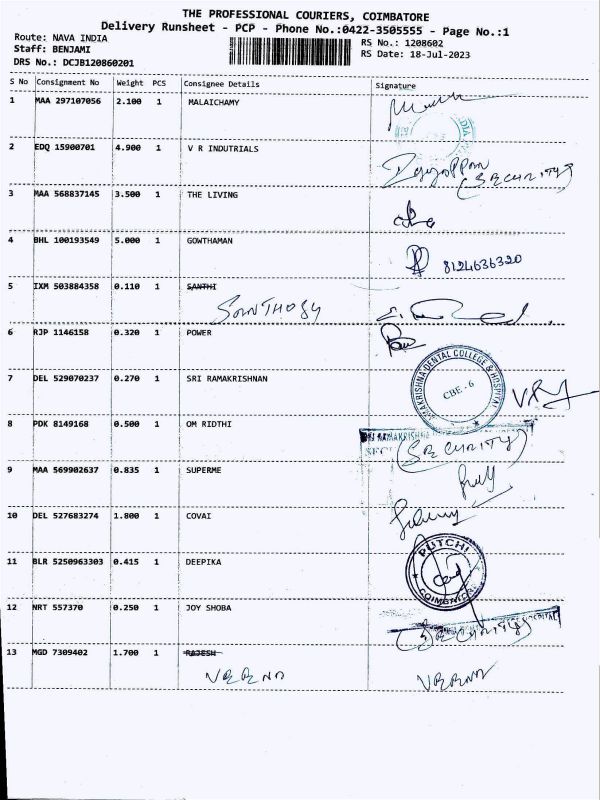 THE PROFESSIONAL COURIERS, COIMBATORE
Delivery Runsheet - PCP - Phone No.:0422-3505555 - Page No.:1
Route: NAVA INDIA
Staff: BENJAMI
DRS No.: DCJB120860201
RS No.: 1208602
RS Date: 18-Jul-2023
S No Consignment No Weight PCS Consignee Details Signature
1 MAA 297107056 2.100 1 MALAICHAMY
2 EDQ 15900701 4.900 1 V R INDUTRIALS
(SECURITY)
3 MAA 568837145 3.500 1 THE LIVING
4 BHL 100193549 5.000 1 GOWTHAMAN
8124636320
5 IXM 503884358 0.110 1 SANTHI
6 RJP 1146158 0.320 1 POWER
7 DEL 529070237 0.270 1 SRI RAMAKRISHNAN
RAMAKRISHNA DENTAL COLLEGE & HOSPITAL
CBE - 6
8 PDK 8149168 0.500 1 OM RIDTHI
(SECURITY)
9 MAA 569902637 0.835 1 SUPERME
10 DEL 527683274 1.800 1 COVAI
11 BLR 5250963303 0.415 1 DEEPIKA
PUTCHI
COIMBATORE
12 NRT 557370 0.250 1 JOY SHOBA
HOSPITAL
(SECURITY)
13 MGD 7309402 1.700 1 RAJESH